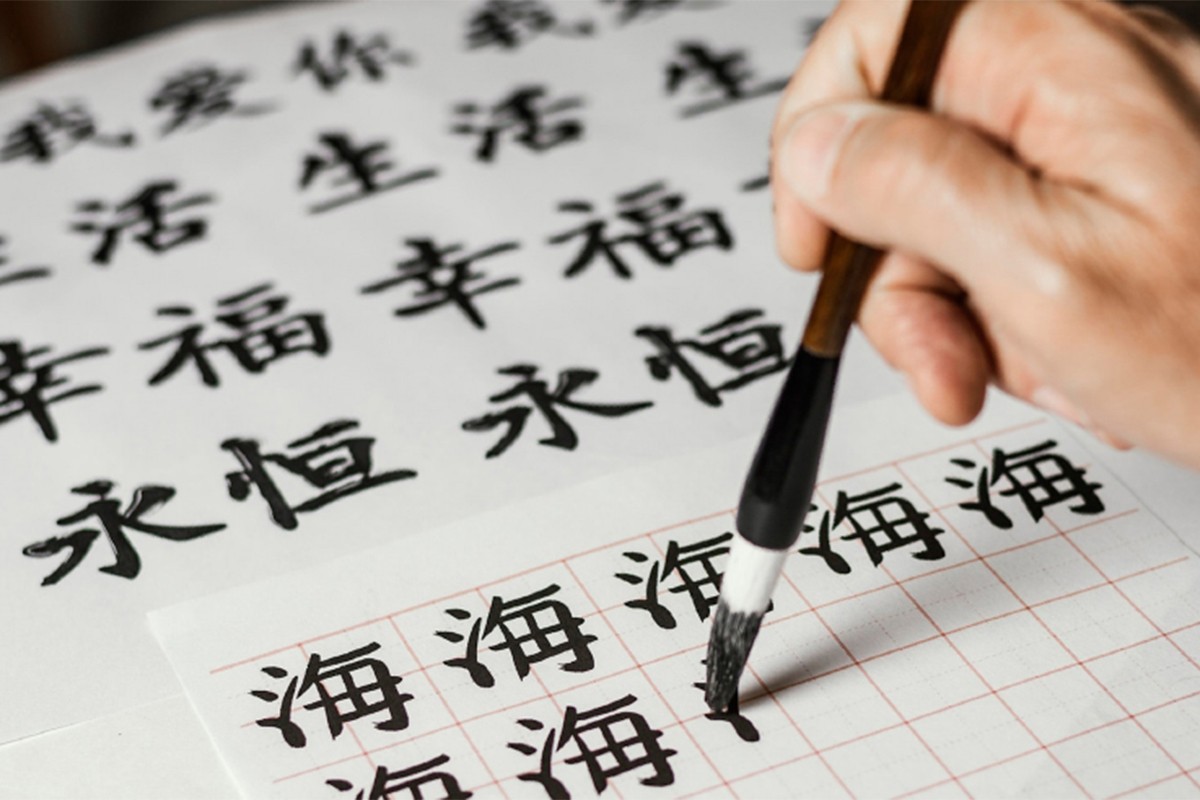 我爱你 我爱
活 生活 生
幸福 幸福
永恒 永恒
海海海海海
海海